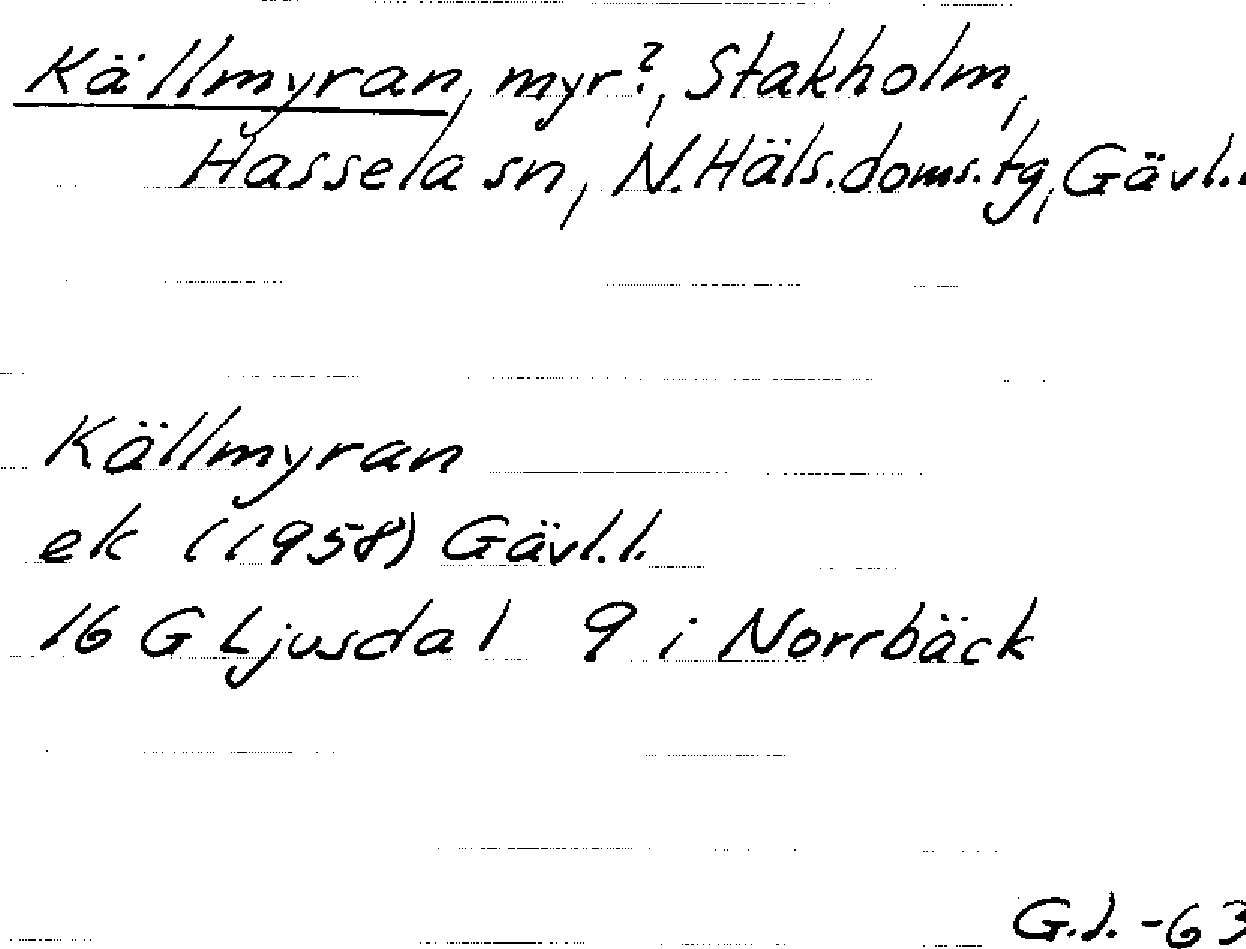 Källmyran, myr?, Stakholm,
Hassela sn, N. Häls. doms. tg, Gävl. l.
Källmyran
ek (1958) Gävl. l.
16 G Ljusdal 9 i Norrbäck
G.J. -63